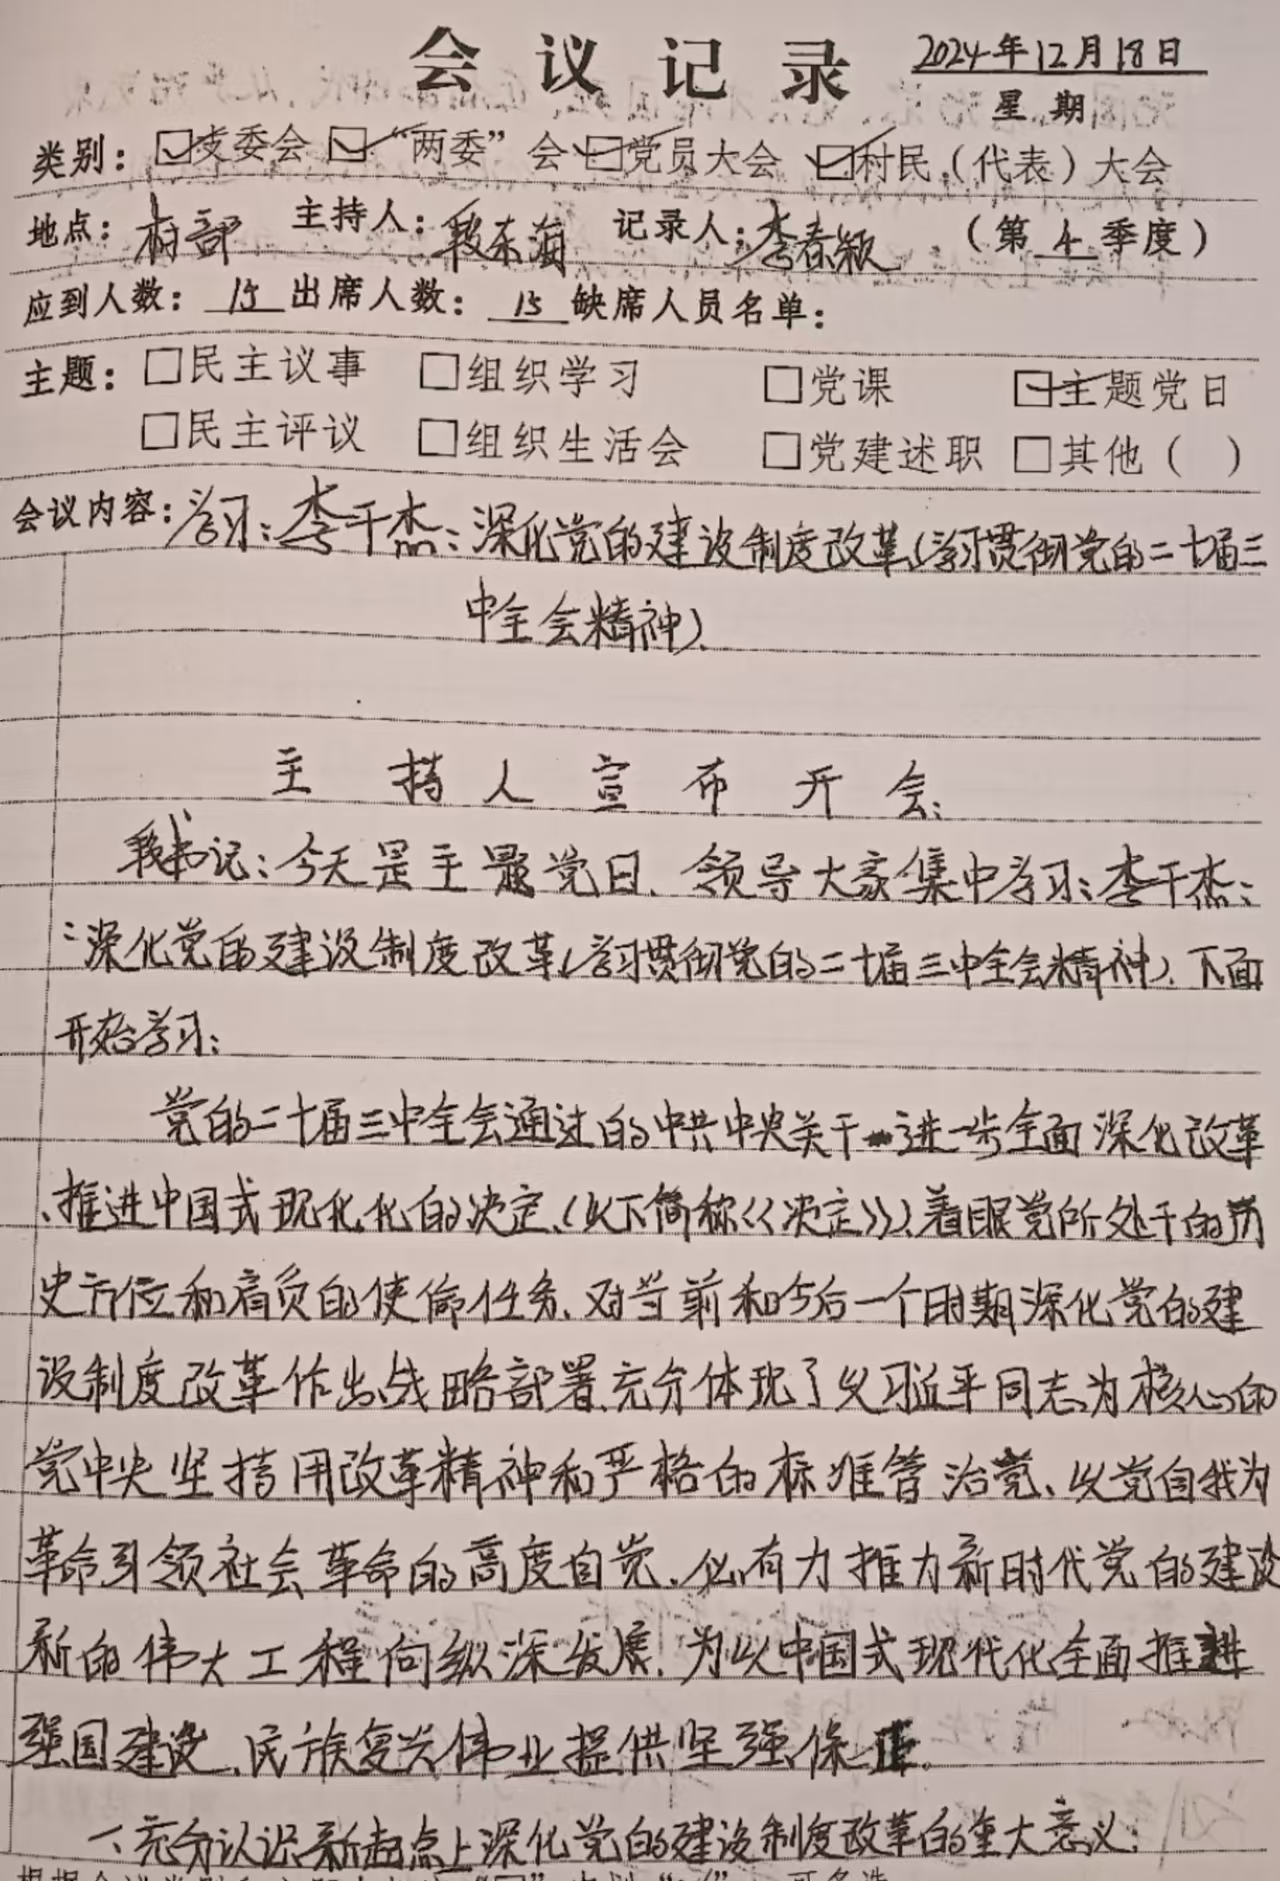 会议记录 2024年12月18日
星期
类别：☑支委会 ☑“两委”会 ☑党员大会 ☑村民（代表）大会
地点：村部 主持人：段东海 记录人：李春颖 （第 4 季度）
应到人数：15 出席人数：15 缺席人员名单：
主题：□民主议事 □组织学习 □党课 ☑主题党日
□民主评议 □组织生活会 □党建述职 □其他（ ）
会议内容：学习：李干杰：深化党的建设制度改革（学习贯彻党的二十届三
中全会精神）.
主持人宣布开会：
段书记：今天是主题党日、领导大家集中学习：李干杰：
：深化党的建设制度改革（学习贯彻党的二十届三中全会精神）.下面
开始学习：
党的二十届三中全会通过的中共中央关于进一步全面深化改革
、推进中国式现化化的决定、（以下简称《决定》）、着眼党所处于的历
史方位和肩负的使命任务、对当前和今后一个时期深化党的建
设制度改革作出战略部署、充分体现了以习近平同志为核心的
党中央坚持用改革精神和严格的标准管治党、以党自我为
革命引领社会革命的高度自觉、必有力推力新时代党的建设
新的伟大工程向纵深发展、为以中国式现代化全面推进
强国建设、民族复兴伟业提供坚强保证.
一、充分认识新起点上深化党的建设制度改革的重大意义：